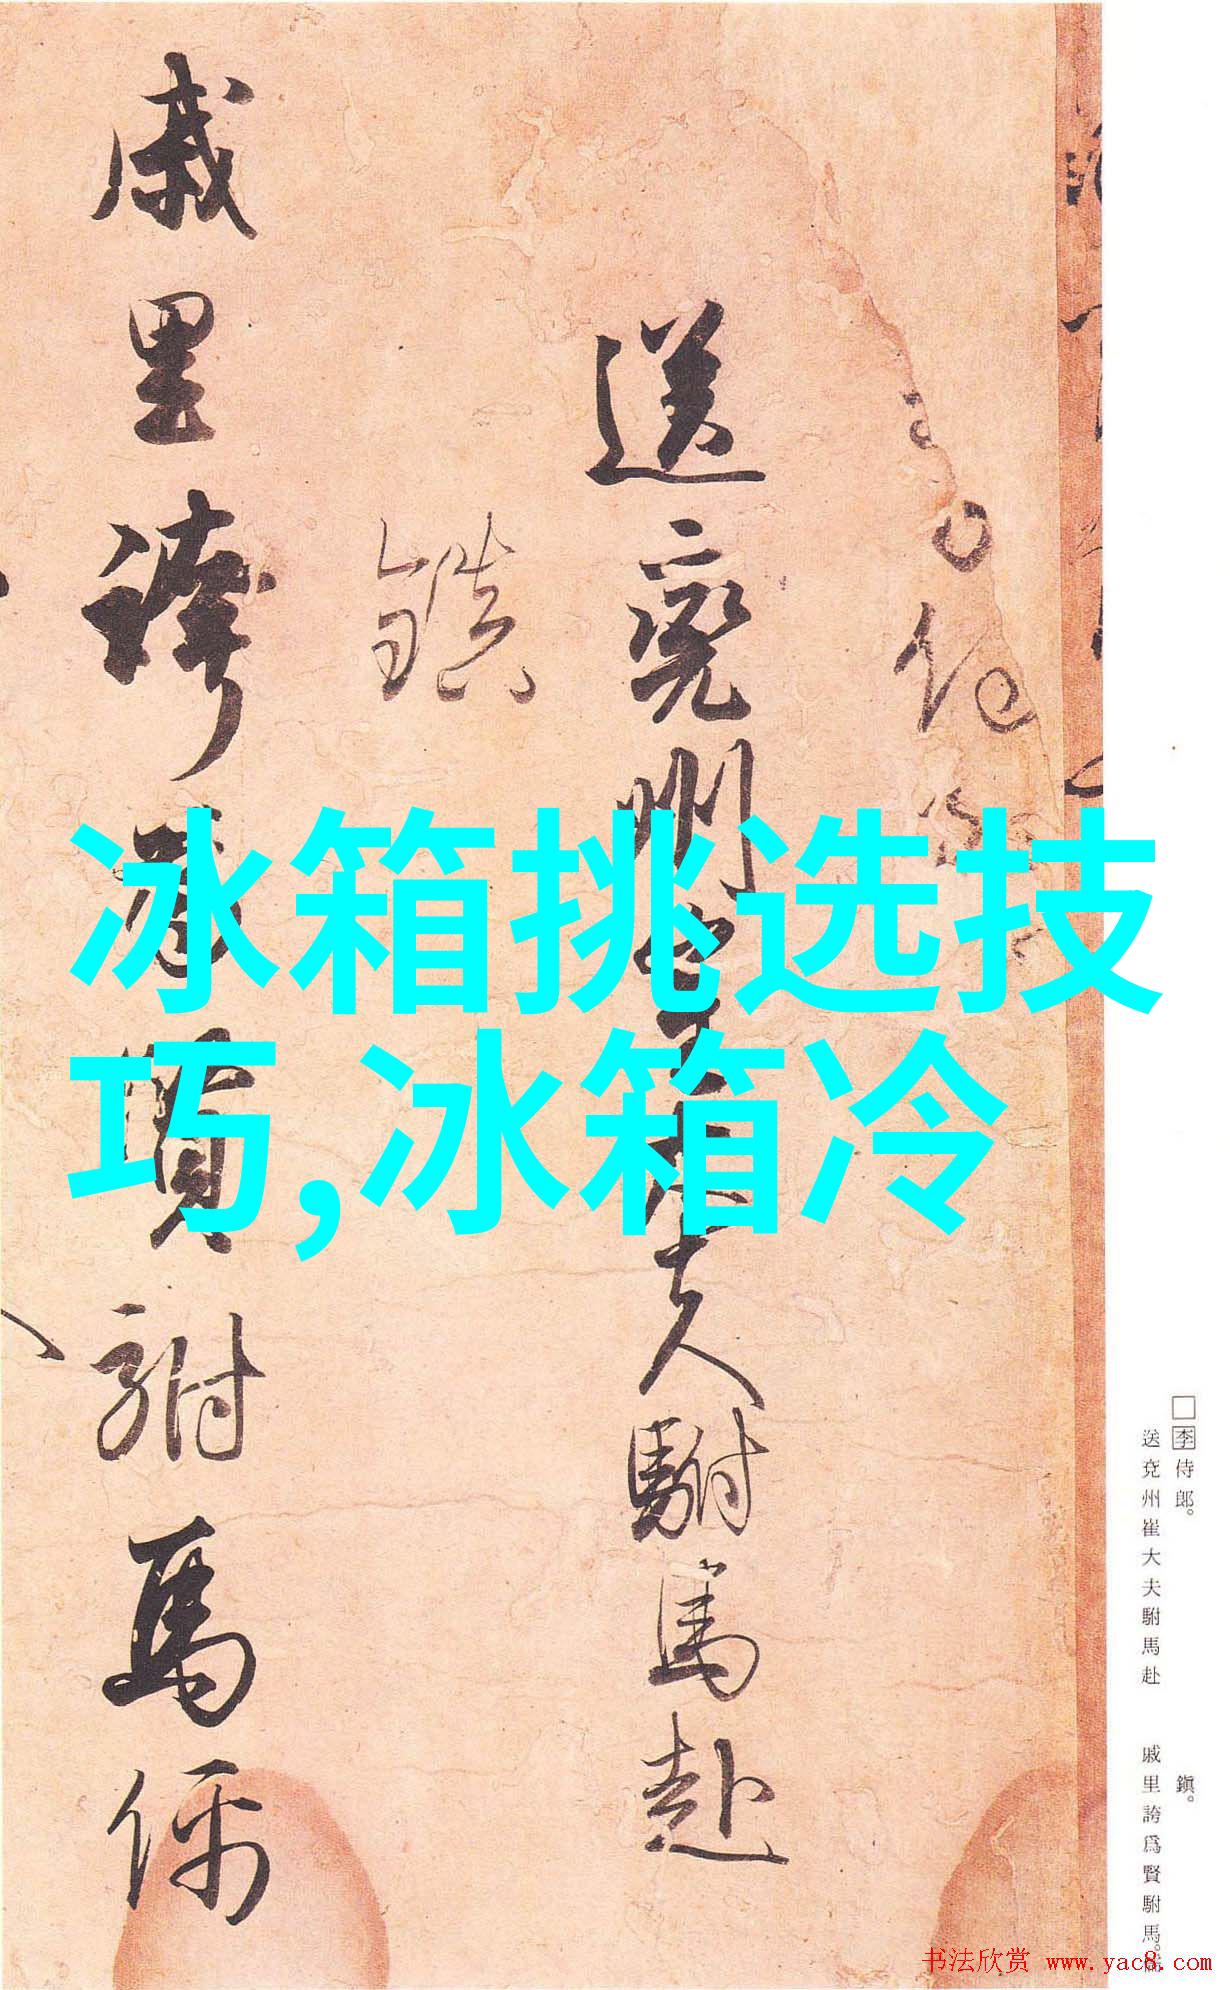 侍
送兖州崔大夫駙馬赴
鎮
戚里誇為賢駙馬儒
冰箱挑选技
巧,冰箱冷
□李侍郎。
送兗州崔大夫駙馬赴
鎭。
戚里誇爲賢駙馬。儒
书法欣赏 www.yac8.com